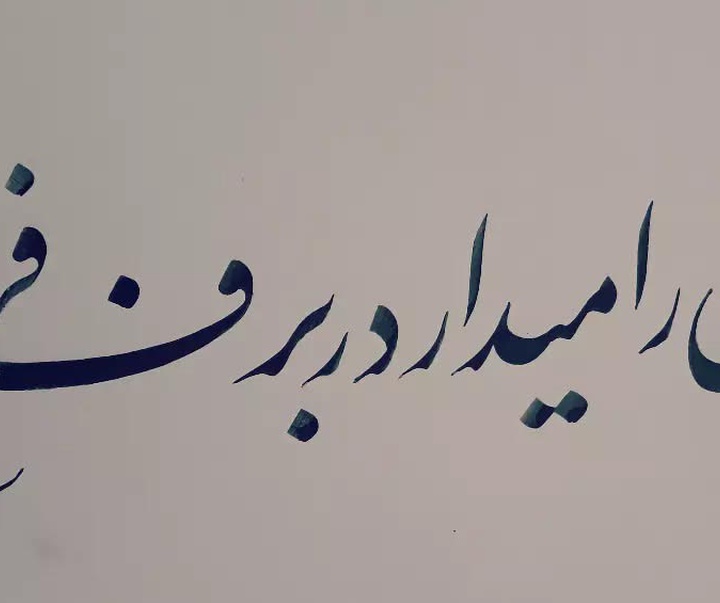 را میدار در برف